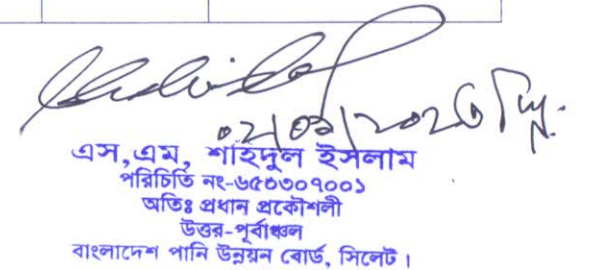 ০২/০৯/২০২৩ খ্রি.
এস,এম, শহিদুল ইসলাম
পরিচিতি নং-৬৫০৩০৭০০১
অতিঃ প্রধান প্রকৌশলী
উত্তর-পূর্বাঞ্চল
বাংলাদেশ পানি উন্নয়ন বোর্ড, সিলেট।